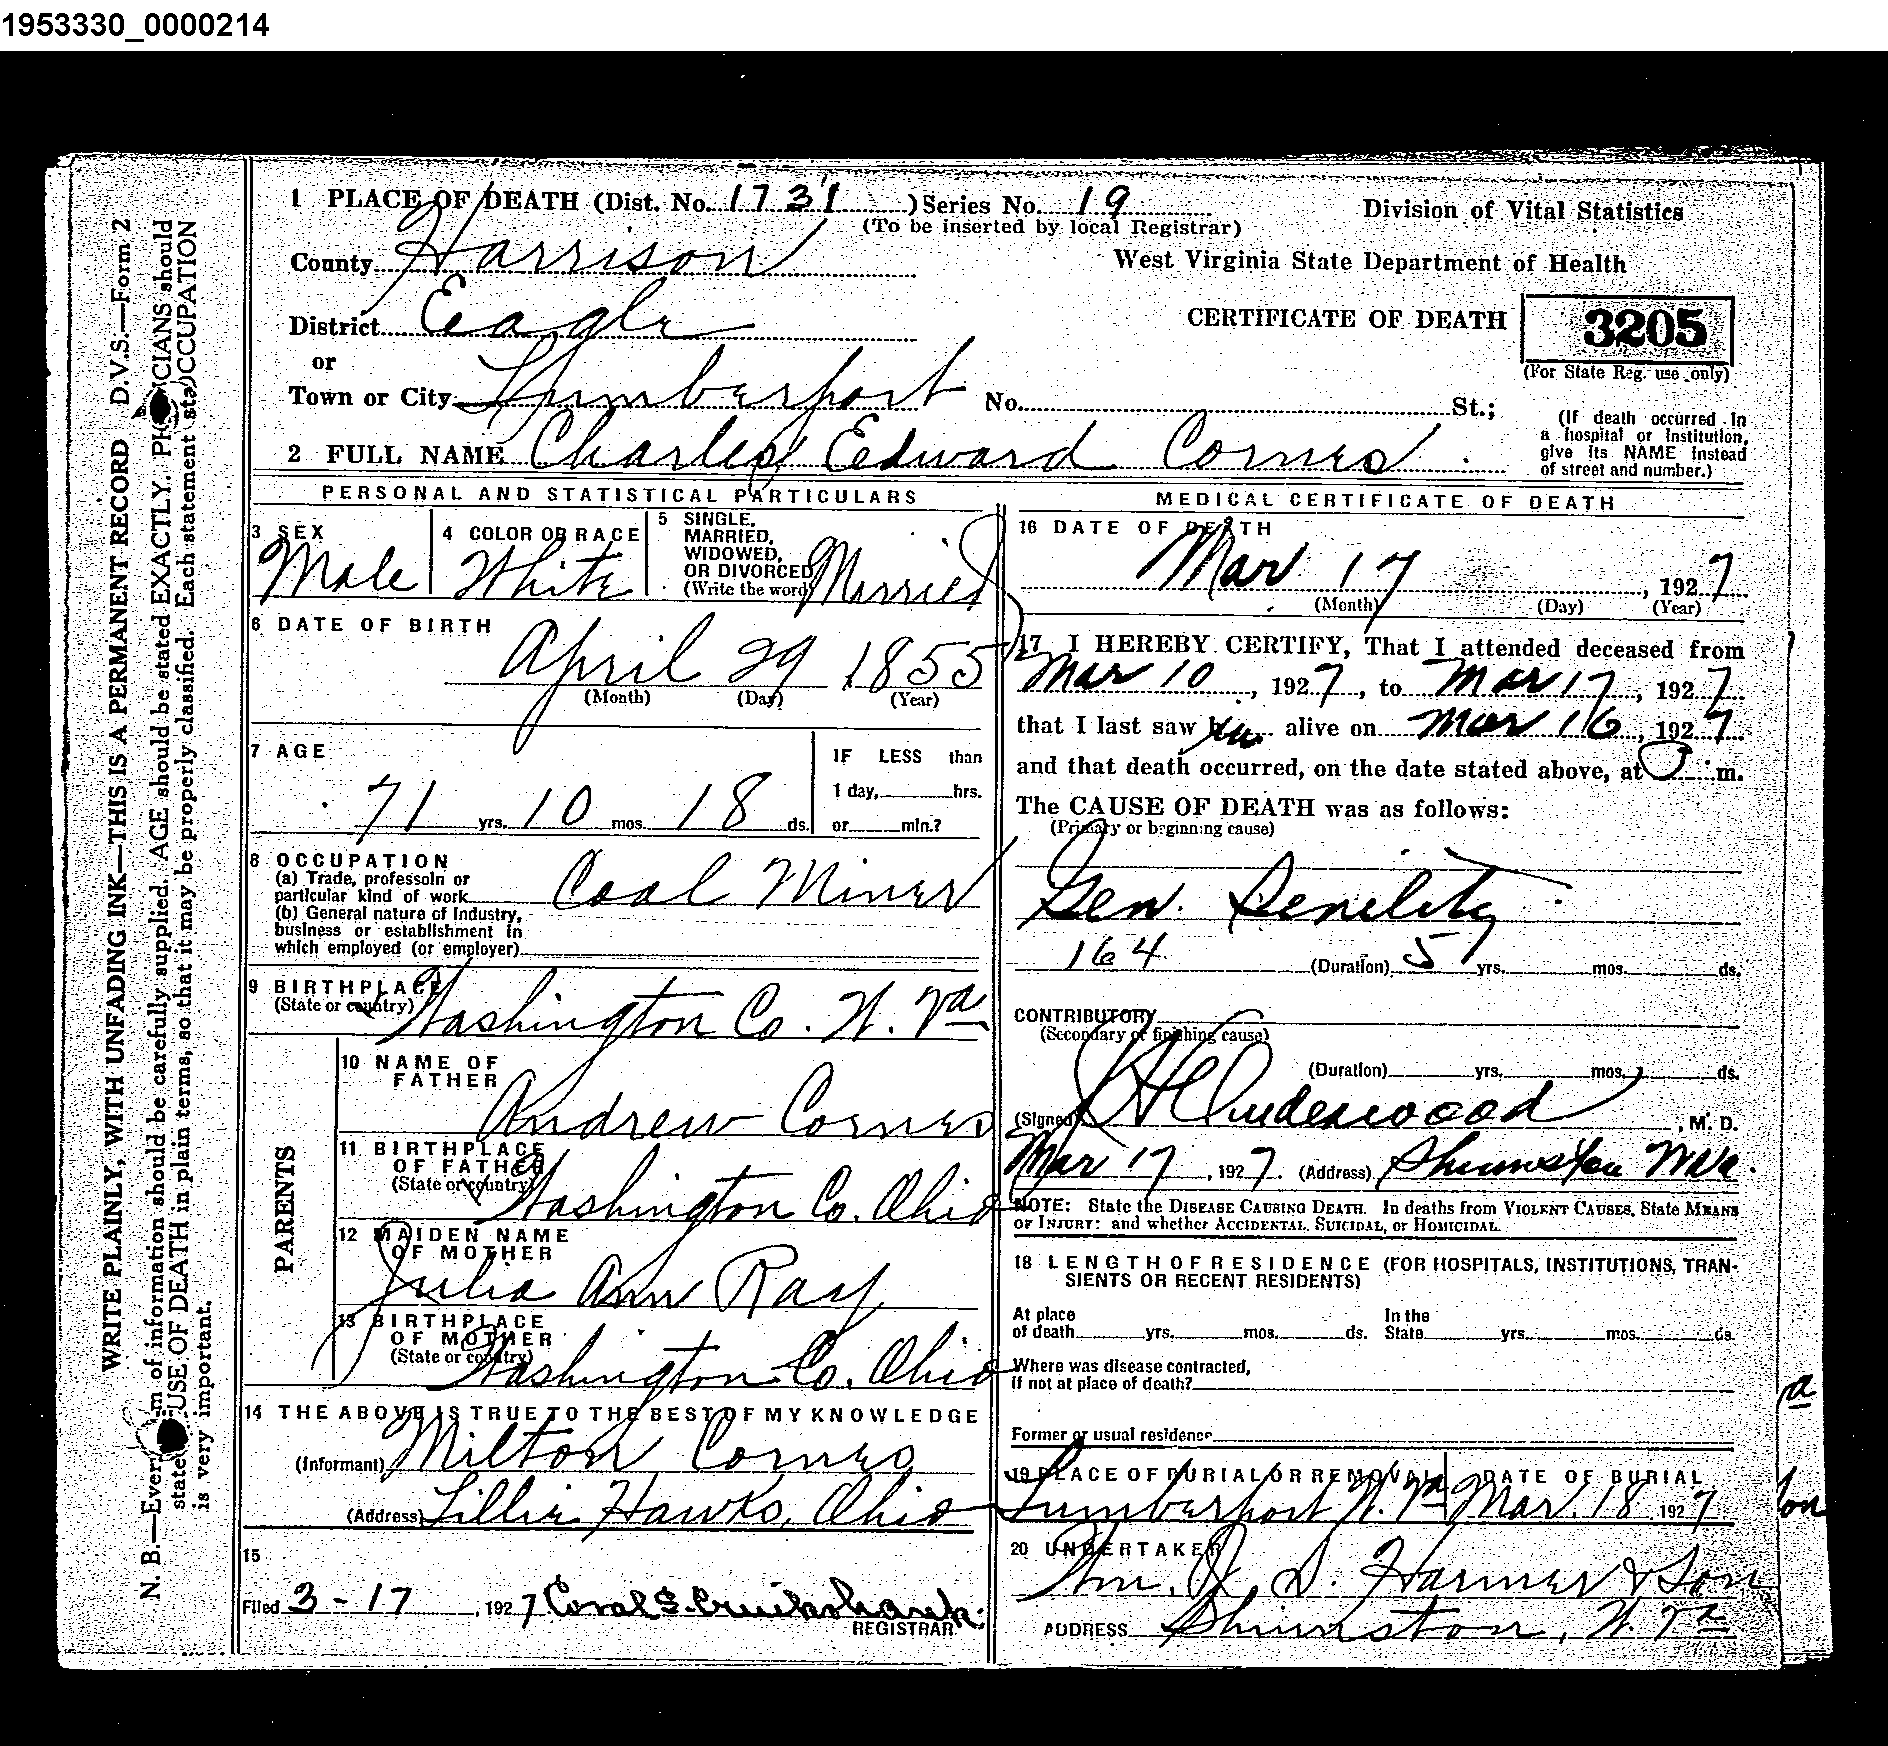 1953330_0000214
1 PLACE OF DEATH (Dist. No. 1731 ) Series No. 19
(To be inserted by local Registrar)
Division of Vital Statistics
County Harrison
West Virginia State Department of Health
District Eagle
CERTIFICATE OF DEATH 3205
(For State Reg. use only)
or
Town or City Lumberport No. St.;
(If death occurred in
a hospital or institution,
give its NAME instead
of street and number.)
2 FULL NAME Charles Edward Cornes
PERSONAL AND STATISTICAL PARTICULARS
3 SEX Male
4 COLOR OR RACE White
5 SINGLE,
MARRIED,
WIDOWED,
OR DIVORCED
(Write the word) Married
6 DATE OF BIRTH
April 29 1855
(Month) (Day) (Year)
7 AGE
71 yrs. 10 mos. 18 ds.
IF LESS than
1 day, hrs.
or min.?
8 OCCUPATION
(a) Trade, professoin or
particular kind of work Coal Miner
(b) General nature of Industry,
business or establishment in
which employed (or employer)
9 BIRTHPLACE
(State or country) Washington Co. W. Va
PARENTS
10 NAME OF
FATHER
Andrew Cornes
11 BIRTHPLACE
OF FATHER
(State or country) Washington Co. Ohio
12 MAIDEN NAME
OF MOTHER
Julia Ann Ray
13 BIRTHPLACE
OF MOTHER
(State or country)
Washington Co. Ohio
14 THE ABOVE IS TRUE TO THE BEST OF MY KNOWLEDGE
(Informant) Milton Cornes
(Address) Lillie Hawks, Ohio
15
Filed 3-17, 1927 Coral S. Cruikshank
REGISTRAR
MEDICAL CERTIFICATE OF DEATH
16 DATE OF DEATH
Mar 17, 1927
(Month) (Day) (Year)
17 I HEREBY CERTIFY, That I attended deceased from
Mar 10, 1927, to Mar 17, 1927
that I last saw him alive on Mar 16, 1927
and that death occurred, on the date stated above, at m.
The CAUSE OF DEATH was as follows:
(Primary or beginning cause)
Gen. Senility
164 (Duration) 5 yrs. mos. ds.
CONTRIBUTORY
(Secondary or finishing cause)
(Duration) yrs. mos. ds.
(Signed) Underwood, M. D.
Mar 17, 1927. (Address) Shinnston W Va.
NOTE: State the DISEASE CAUSING DEATH. In deaths from VIOLENT CAUSES, State MEANS
OF INJURY: and whether ACCIDENTAL, SUICIDAL, or HOMICIDAL.
18 LENGTH OF RESIDENCE (FOR HOSPITALS, INSTITUTIONS, TRAN-
SIENTS OR RECENT RESIDENTS)
At place
of death yrs. mos. ds.
In the
State yrs. mos. ds.
Where was disease contracted,
if not at place of death?
Former or usual residence
19 PLACE OF BURIAL OR REMOVAL
Lumberport W. Va
DATE OF BURIAL
Mar. 18 1927
20 UNDERTAKER
Wm. R. D. Harmer & Son
ADDRESS Shinnston, W. Va
a
ton
D.V.S.—Form 2
WRITE PLAINLY, WITH UNFADING INK—THIS IS A PERMANENT RECORD
N. B.—Every item of information should be carefully supplied. AGE should be stated EXACTLY. PHYSICIANS should
state CAUSE OF DEATH in plain terms, so that it may be properly classified. Each statement OCCUPATION
is very important.